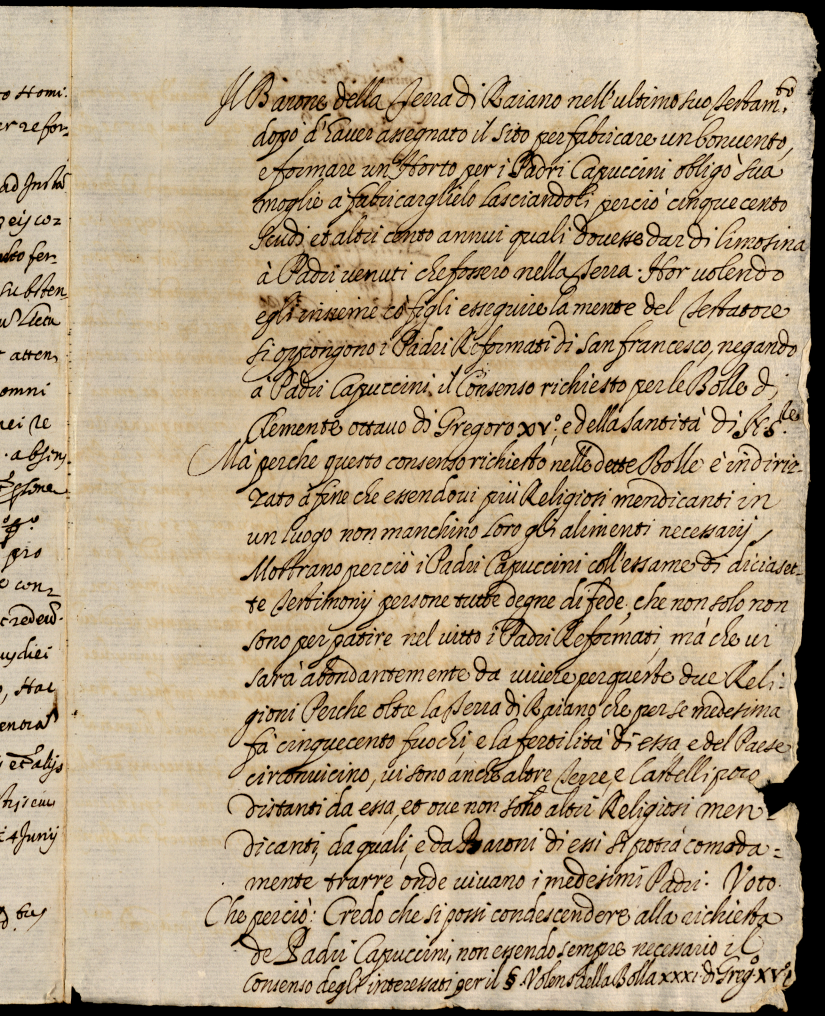 o Homi.
er refor
ad Insta
eij cor
lto fer
substen
atten
omni
nei re
absen
pro
e con
credend.
uy diei
o, Hac
et alijs
4 Junij
Il Barone della Terra di Raiano nell'ultimo suo testam.to
dopo d'haver assegnato il sito per fabricare un Convento,
e formare un'Horto per i Padri Capuccini obligò sua
moglie à fabricarglielo lasciandoli perciò cinquecento
scudi et altri cento annui quali dovesse dar di limosina
à Padri venuti che fossero nella Terra. Hor volendo
egli insieme co' figli esseguire la mente del Testatore
si oppongono i Padri Reformati di San francesco, negando
à Padri Capuccini il Consenso richiesto per le Bolle di
Clemente ottavo di Gregoro XV.o e della Santità di N. S.re
Mà perche questo consenso richiesto nelle dette Bolle è indiriz-
zato à fine che essendovi più Religiosi mendicanti in
un luogo non manchino loro gli alimenti necessarij
Mostrano perciò i Padri Capuccini coll'essame di diciaset-
te Testimonij persone tutte degne di fede, che non solo non
sono per patire nel vitto i Padri Reformati, mà che vi
sarà abondantemente da vivere per queste due Reli-
gioni Perche oltre la Terra di Raiano che per se medesima
fà cinquecento fuochi, e la fertilità di essa e del Paese
circonvicino, vi sono anche altre Terre e Castelli poco
distanti da essa, et ove non sono altri Religiosi men-
dicanti, da quali, e da Baroni di essi si potrà comoda-
mente trarre onde vivano i medesimi Padri. Voto
Che perciò: Credo che si possi condescendere alla richiesta
de Padri Capuccini, non essendo sempre necessario il
Consenso degl'interessati per il § Volens della Bolla XXXI di Greg.o XV.o